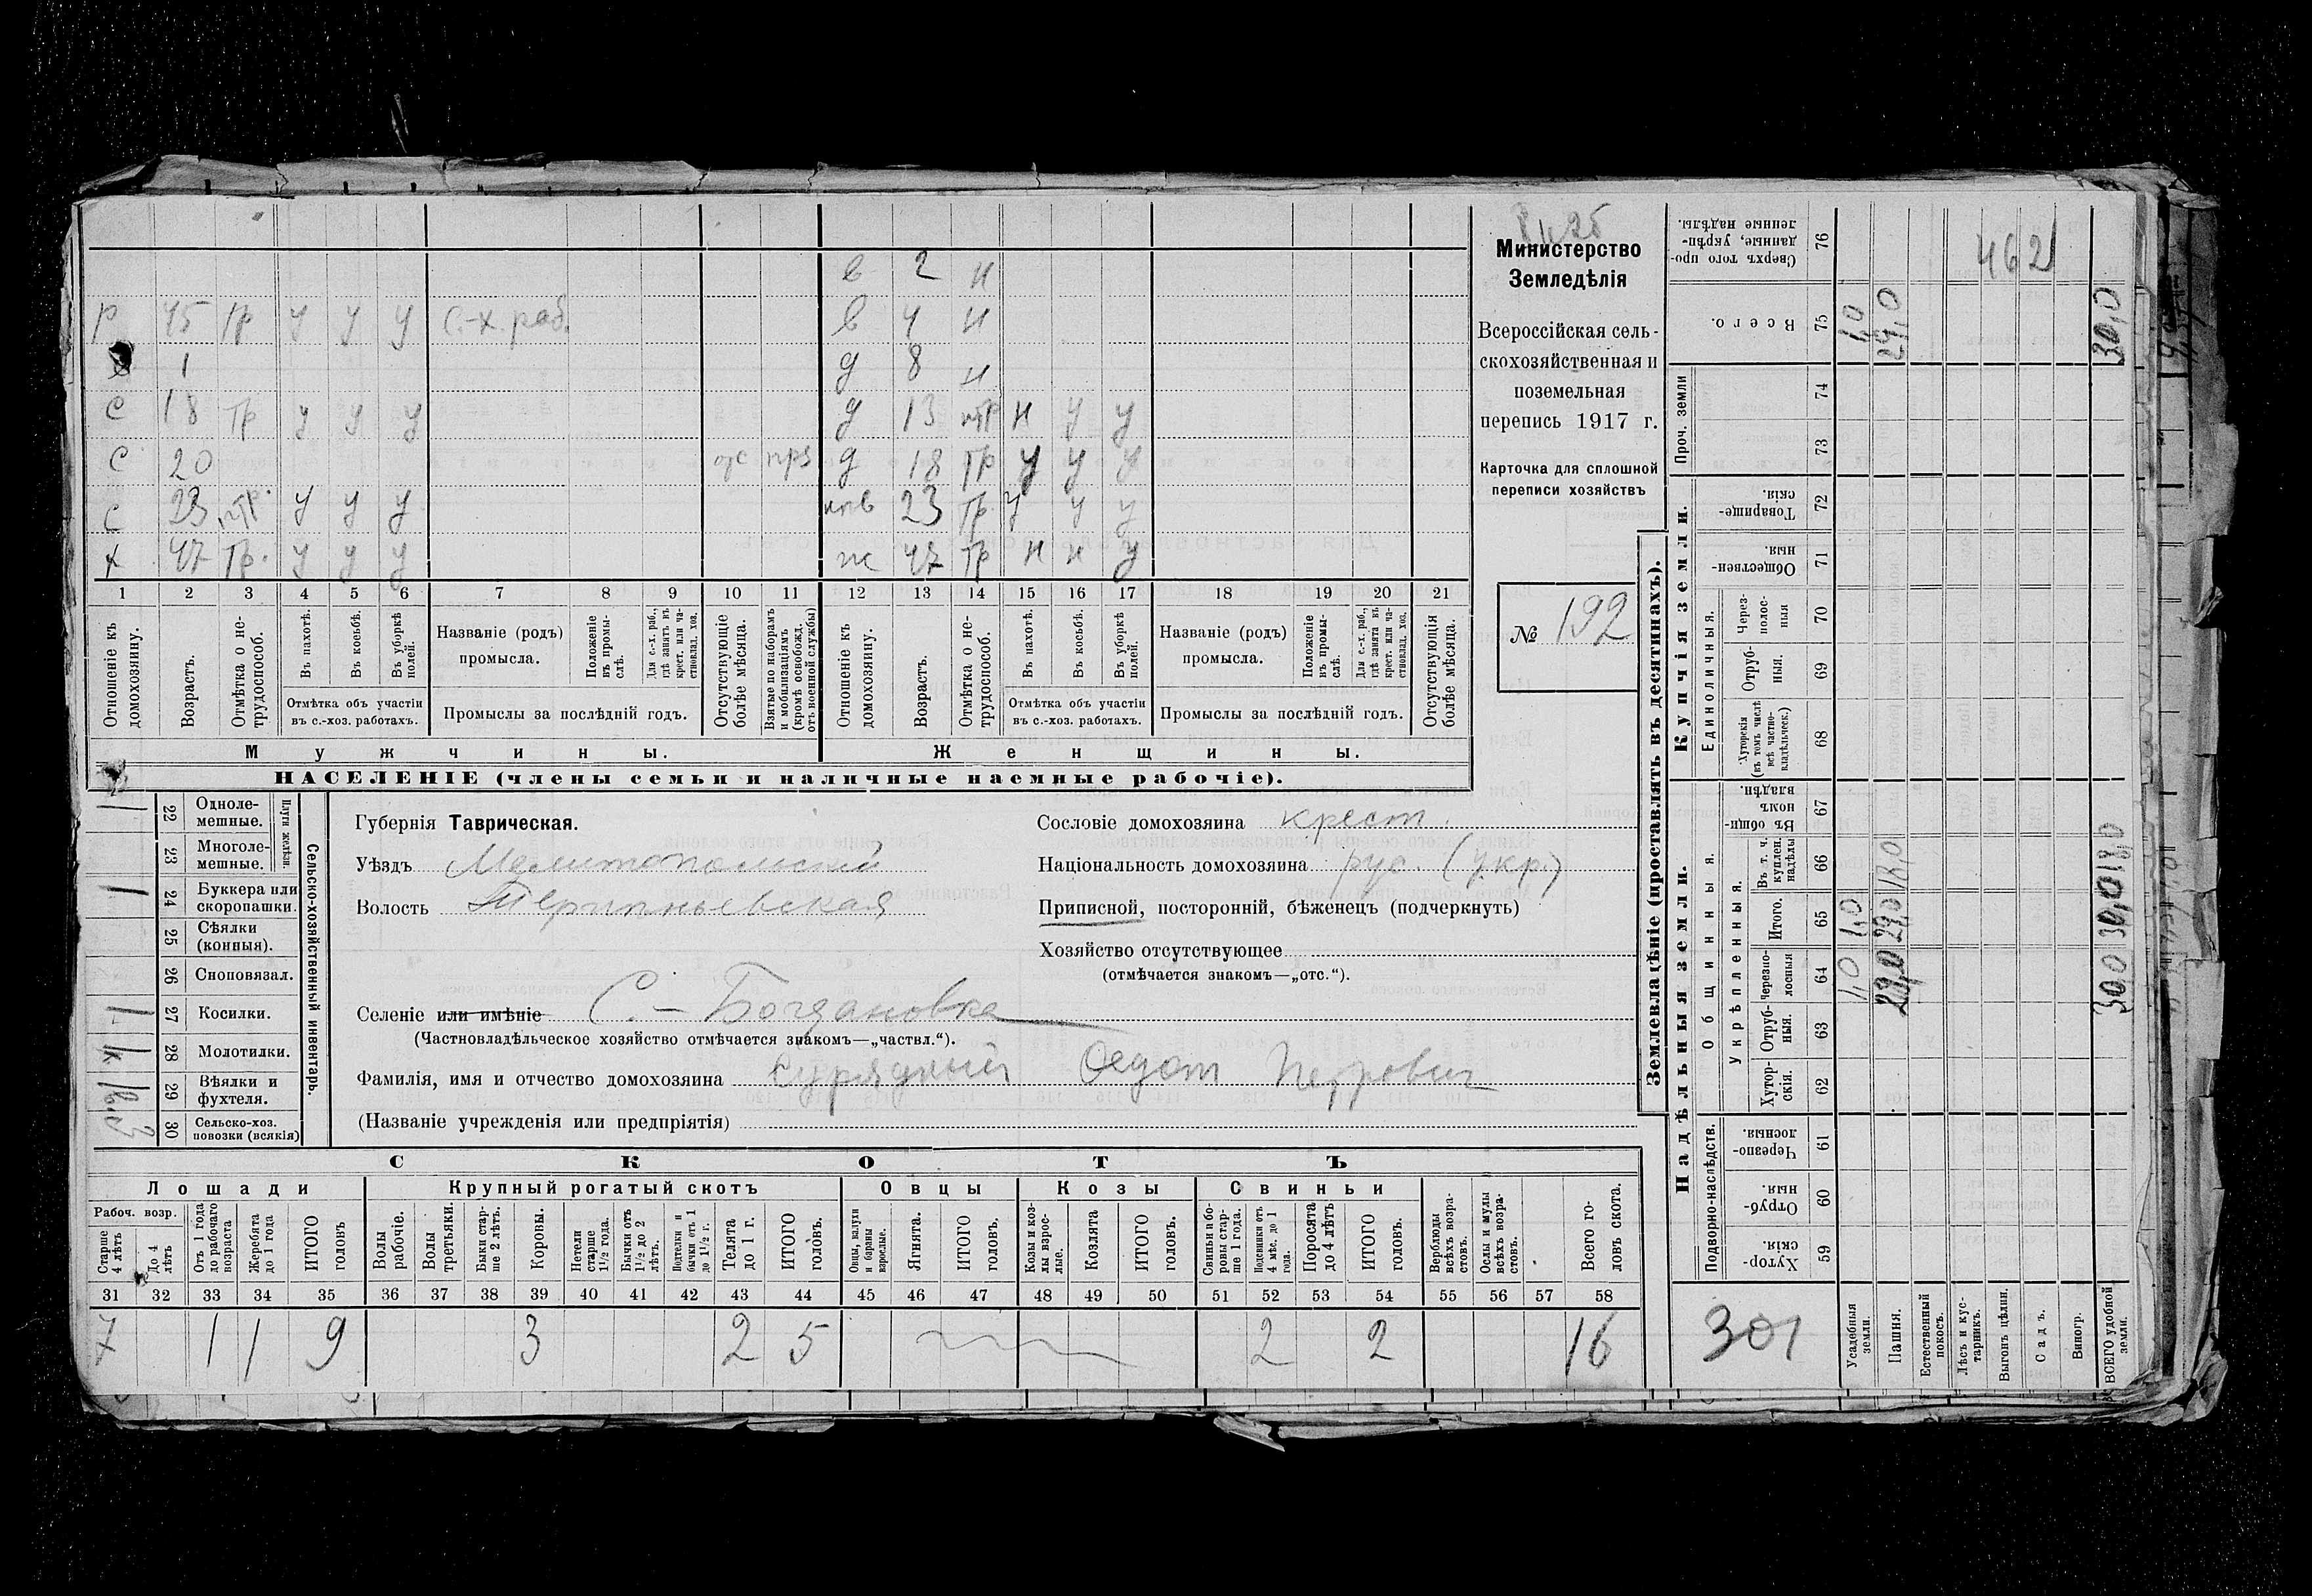 в 2 н
р 45 тр у у у с.-х. раб. в 4 н
1 д 8 н
с 18 тр у у у д 13 нтр н у у
с 20 отс прз д 18 тр у у у
с 23 нтр. у у у нев 23 тр. у у у
х 47 тр. у у у ж 47 тр н н у
1 2 3 4 5 6 7 8 9 10 11 12 13 14 15 16 17 18 19 20 21
Отношеніе къ домохозяину.
Возрастъ.
Отмѣтка о нетрудоспособ.
Въ пахотѣ.
Въ косьбѣ.
Въ уборкѣ полей.
Отмѣтка объ участіи
въ с.-хоз. работахъ.
Названіе (родъ)
промысла.
Положеніе въ промыслѣ.
Для с.-х. раб., гдѣ занятъ въ крест. или частновлад. хоз.
Промыслы за послѣдній годъ.
Отсутствующіе болѣе мѣсяца.
Взятые по наборамъ и мобилизаціямъ (кромѣ освобожд. отъ военной службы)
Отношеніе къ домохозяину.
Возрастъ.
Отмѣтка о нетрудоспособ.
Въ пахотѣ.
Въ косьбѣ.
Въ уборкѣ полей.
Отмѣтка объ участіи
въ с.-хоз. работахъ.
Названіе (родъ)
промысла.
Положеніе въ промыслѣ.
Для с.-х. раб., гдѣ занята въ крест. или частновлад. хоз.
Промыслы за послѣдній годъ.
Отсутствующія болѣе мѣсяца.
Мужчины. Женщины.
НАСЕЛЕНІЕ (члены семьи и наличные наемные рабочіе).
Министерство
Земледѣлія
Всероссійская сель-
скохозяйственная и
поземельная
перепись 1917 г.
Карточка для сплошной
переписи хозяйствъ
№ 192
Сельско-хозяйственный инвентарь.
Плуги желѣзн.
1 22 Одноле-
мешные.
23 Многоле-
мешные.
1 24 Буккера или
скоропашки.
25 Сѣялки
(конныя).
26 Сноповязал.
1 27 Косилки.
1 к. 28 Молотилки.
1 29 Вѣялки и
фухтеля.
3 30 Сельско-хоз.
повозки (всякія)
Губернія Таврическая.
Уѣздъ Мелитопольскій
Волость Терпѣньевская
Селеніе или имѣніе С. - Богдановка
(Частновладѣльческое хозяйство отмѣчается знакомъ—„частвл.“).
Фамилія, имя и отчество домохозяина Ѳедот Петрович
(Названіе учрежденія или предпріятія)
Сословіе домохозяина крест.
Національность домохозяина рус (укр.)
Приписной, посторонній, бѣженецъ (подчеркнуть)
Хозяйство отсутствующее
(отмѣчается знакомъ—„отс.“).
СКОТЪ
Лошади Крупный рогатый скотъ Овцы Козы Свиньи
Рабоч. возр.
Старше 4 лѣтъ
До 4 лѣтъ
Отъ 1 года до рабочаго возраста
Жеребята до 1 года
ИТОГО головъ
Волы рабочіе.
Волы третьяки.
Быки старше 2 лѣтъ.
Коровы.
Нетели старше 1½ года.
Бычки отъ 1½ до 2 лѣтъ.
Подтелки и бычки отъ 1 до 1½ г.
Телята до 1 г.
ИТОГО головъ.
Овцы, валухи и бараны взрослые.
Ягнята.
ИТОГО головъ.
Козы и козлы взрослые.
Козлята
ИТОГО головъ.
Свиньи и боровы старше 1 года.
Подсвинки отъ 4 мѣс. до 1 года.
Поросята до 4 лѣтъ
ИТОГО головъ.
Верблюды всѣхъ возрастовъ.
Ослы и мулы всѣхъ возрастовъ.
Всего головъ скота.
31 32 33 34 35 36 37 38 39 40 41 42 43 44 45 46 47 48 49 50 51 52 53 54 55 56 57 58
7 1 1 9 3 2 5 2 2 16
Землевладѣніе (проставлять въ десятинахъ).
Надѣльныя земли. Купчія земли.
Подворно-наслѣдств.
Общинныя.
Укрѣпленныя.
Единоличныя.
Проч. земли
Хуторскія. 59
Отрубныя. 60
Черезполосныя. 61
Хуторскія. 62
Отрубныя. 63
Черезполосныя 64
Итого. 65
Въ т. ч. куплен. надѣлы 66
Въ общинномъ владѣн. 67
Хуторскія (въ томъ числѣ всѣ частновладѣльческ.) 68
Отрубныя. 69
Черезполосныя 70
Общественныя. 71
Товарищескія. 72
73
74
Всего. 75
Сверхъ того проданные, укрѣпленные надѣлы. 76
301
Усадебныя земли. 1,0 1,0 1,0
Пашня. 29,0 29,0 18,0 29,0
Естественный покосъ.
Лѣсъ и кустарникъ.
Выгонъ цѣлин.
Садъ.
Виногр.
ВСЕГО удобной земли. 30,0 30,0 18,0 30,0
462